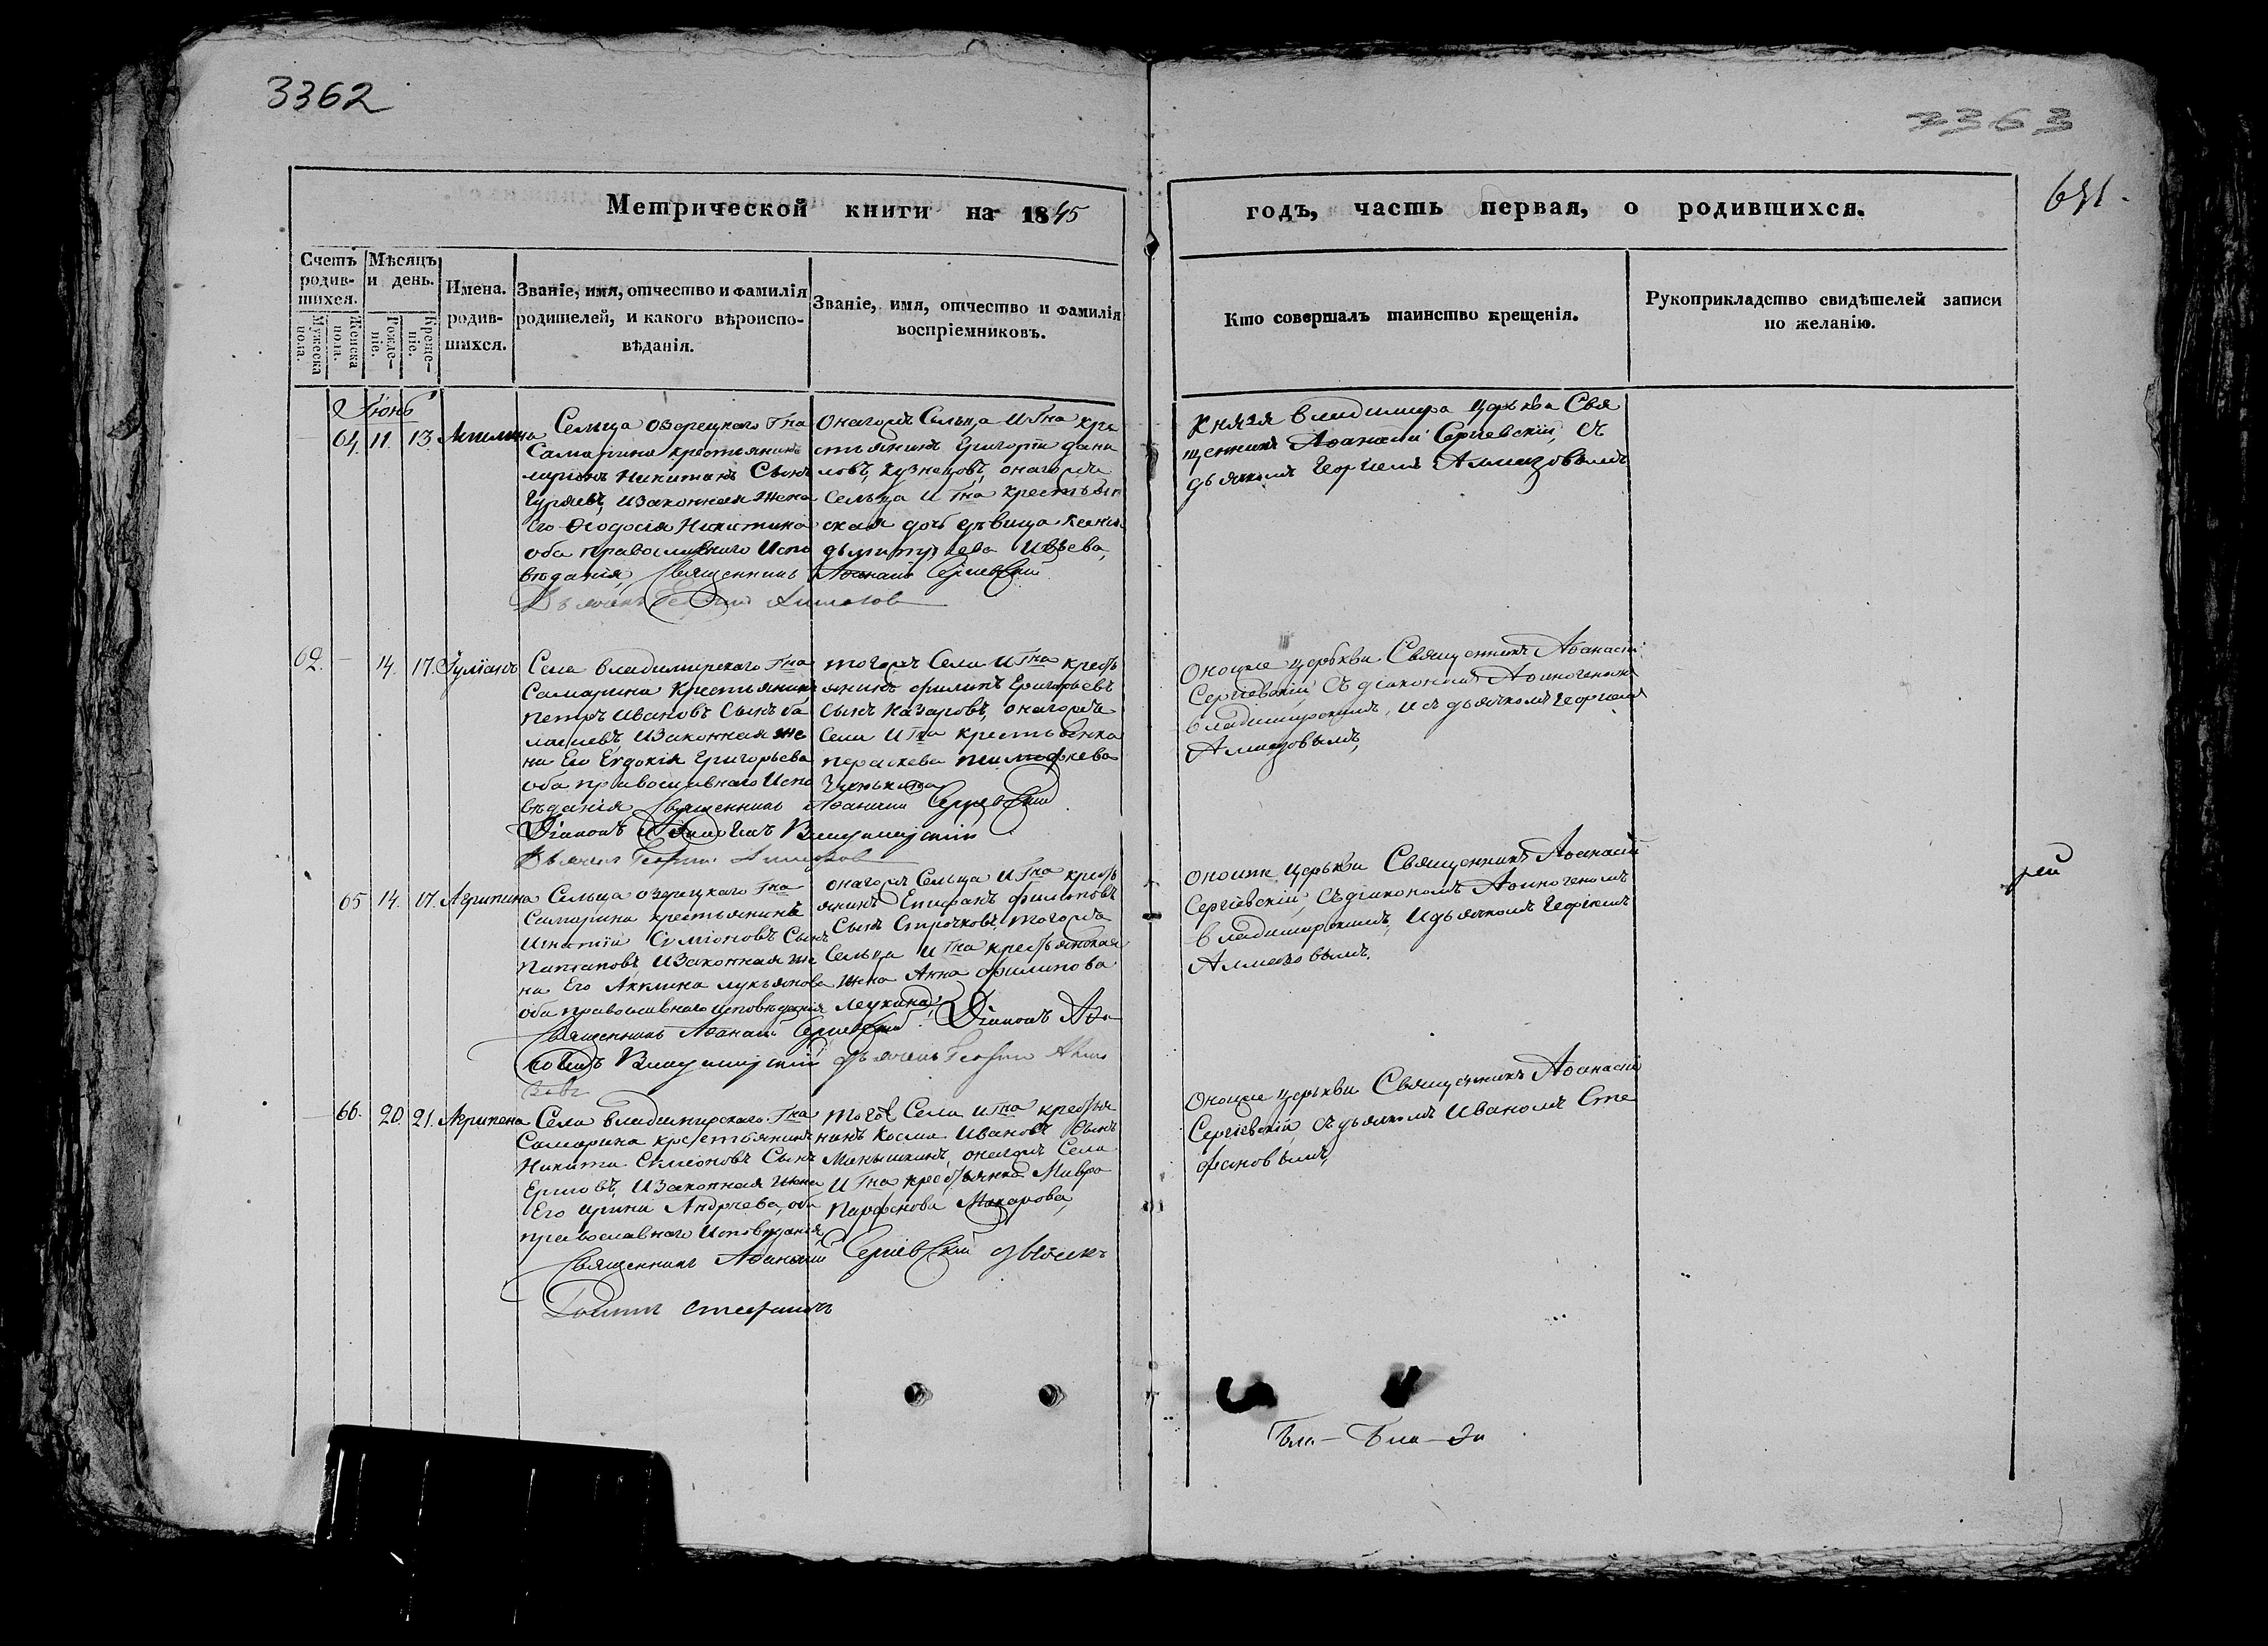 3362
2363
631.
Метрической книги на 1845
годъ, часть первая, о родившихся.
Счетъ родив-шихся.
Мѣсяцъ и день.
Мужеска пола.
Женска пола.
Рожде-ніе.
Креще-ніе.
Имена родив-шихся.
Званіе, имя, отчество и фамилія
родителей, и какого вѣроиспо-
вѣданія.
Званіе, имя, отчество и фамилія
воспріемниковъ.
Кто совершалъ таинство крещенія.
Рукоприкладство свидѣтелей записи
по желанію.
Іюнь
64. 11. 13. Акилина
Сельца озерецкаго Гна
Самарина крестьянинъ
Никитинъ Сынъ
Гуряевъ, изаконная Жена
Его Ѳеодосія Никитина
оба православнаго Испо
вѣданія, Священникъ Аѳанасій Сергіевскій
Дьячекъ Георгій Алмазов
Онагожъ Сельца и Гна кре
стьянинъ Григорій дани
ловъ, Кузнецовъ, онагожъ
Сельца и Гна крестьян
ская дочь дѣвица
дьмитріева
Князя владимира церькви Свя
щенникъ Аѳанасій Сергіевскій, съ
дьячкомъ Георгіемъ Алмазовымъ
62. – 14. 17. Іуліанъ
Села владимирскаго Гна
Самарина Крестьянинъ
петръ Ивановъ Сынъ
изаконная же
на Его Евдокія Григорьева
оба православнаго Испо
вѣданія Священникъ Аѳанасій Сергіевскій
Діаконъ Аѳиногенъ Владимірскій
Дьячекъ Георгій Алмазов
тогожъ Села и Гна кресть
янинъ филипъ Григорьевъ
Сынъ Назаровъ, онагожъ
Села и Гна крестьянка
параскева
Оноиже церькви Священникъ Аѳанасій
Сергіевскій, Съ діакономъ Аѳиногеномъ
владимирскимъ, и съ дьячкомъ Георгіемъ
Алмазовымъ,
65 14. 17. Агрипина
Сельца озерецкаго Гна
Самарина крестьянинъ
Игнатій Симіоновъ Сынъ
Патаповъ, изаконная же
на Его Акилина лукьянова
оба православнаго исповѣданія
Священникъ Аѳанасій Сергіевскій. Діаконъ Аѳи
ногенъ Владимірскій Дьячекъ Георгій Алма
зовъ
онагожъ Сельца и Гна кресть
янинъ Епифанъ филиповъ
Сынъ Строчковъ, тогожъ
Сельца и Гна крестьянская
жена Анна филипова
Оноиже Церькви Священникъ Аѳанасій
Сергіевскій, Съ діакономъ Аѳиногеномъ
владимирскимъ, и дьячкомъ Георгіемъ
Алмазовымъ.
66. 20. 21. Агрипена
Села владимирскаго Гна
Самарина крестьянинъ
Никита Симіоновъ Сынъ
Ермовъ, изаконная жена
Его ирина Андреева, оба
православнаго Исповѣданія
Священникъ Аѳанасій Сергіевскій дьячекъ
Іоаннъ Стефановъ
того Села и Гна крестья
нинъ Косма Ивановъ Сынъ
Манышкинъ, онагожъ Села
и Гна крестьянка Мавра
Парфенова Макарова,
Оноиже церькви Священникъ Аѳанасій
Сергіевскій, съ дьячкомъ Иваномъ Сте
фановымъ,
рей